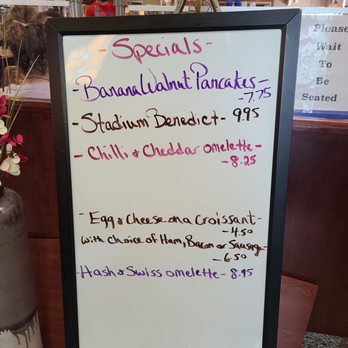 - Specials -
- Banana Walnut Pancakes -
- 7.75
- Stadium Benedict - 995
- Chilli & Cheddar omelette -
- 8.25
- Egg & Cheese on a Croissant -
- 4.50
with choice of Ham, Bacon or Sausage -
- 6.50
- Hash & Swiss omelette - 8.95
Please
Wait
To
Be
Seated